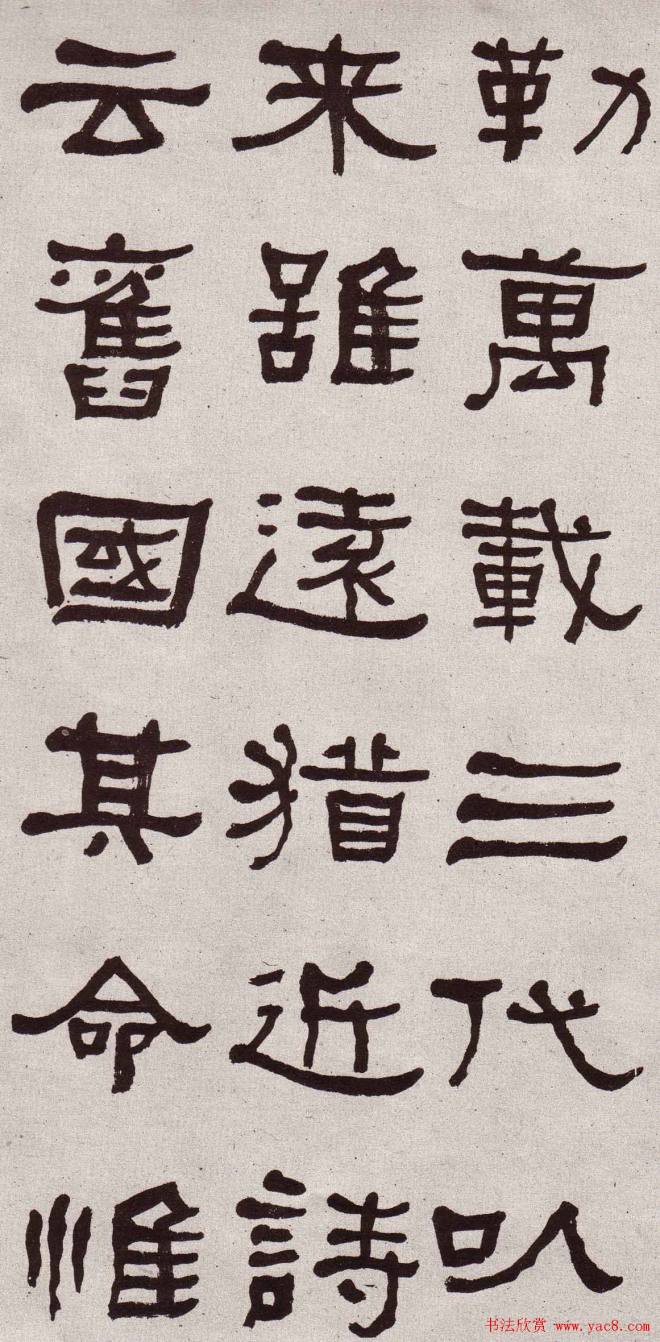 勒萬載三代以
来雖遠猶近詩
云舊國其命惟
书法欣赏 www.yac8.com